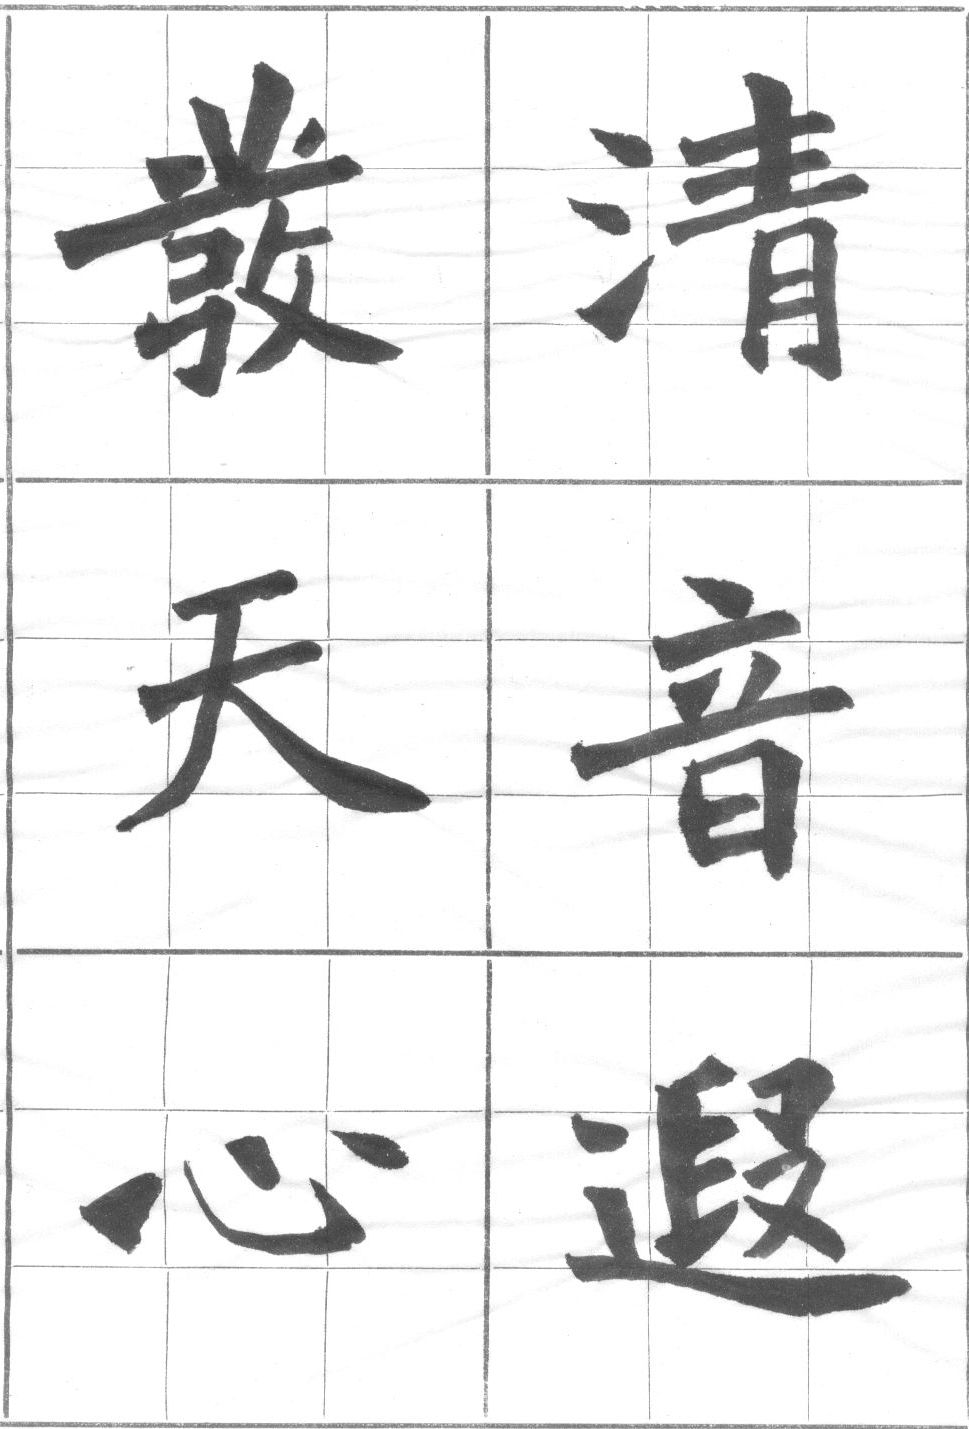 清音遐
發天心